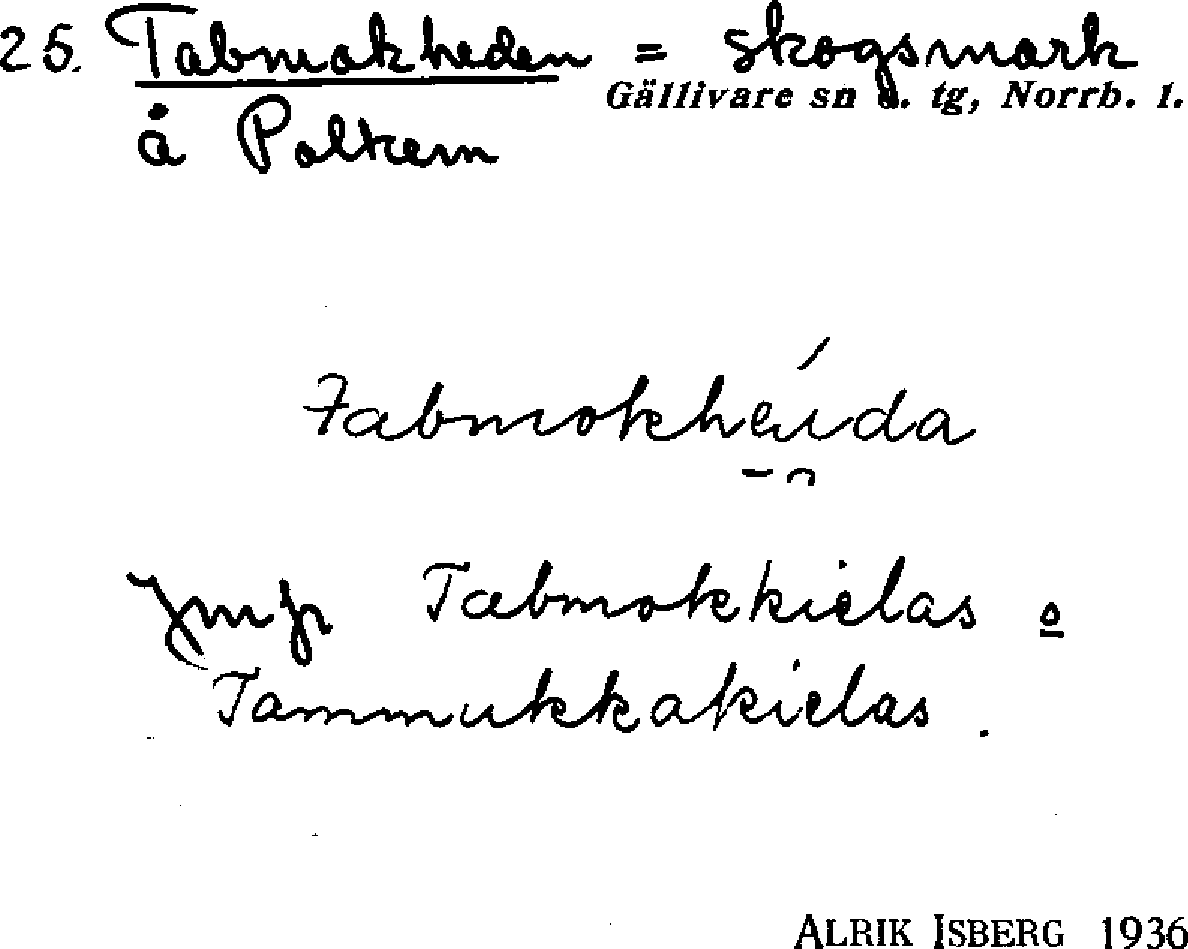 25. Tabmokheden = skogsmark
Gällivare sn o. tg, Norrb. l.
å Polkem
Tabmokhéida
Jmfr Tabmokkielas o
Tammukkakielas.
ALRIK ISBERG 1936